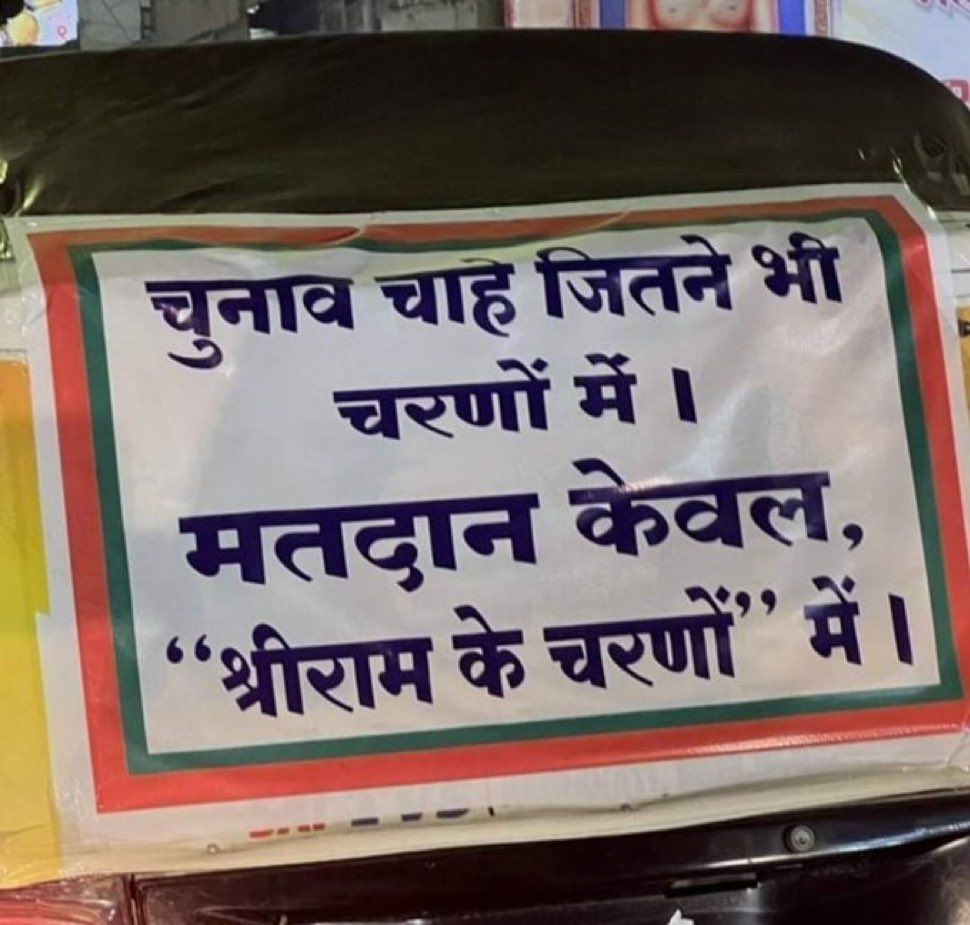 चुनाव चाहे जितने भी
चरणों में ।
मतदान केवल,
“श्रीराम के चरणों” में ।